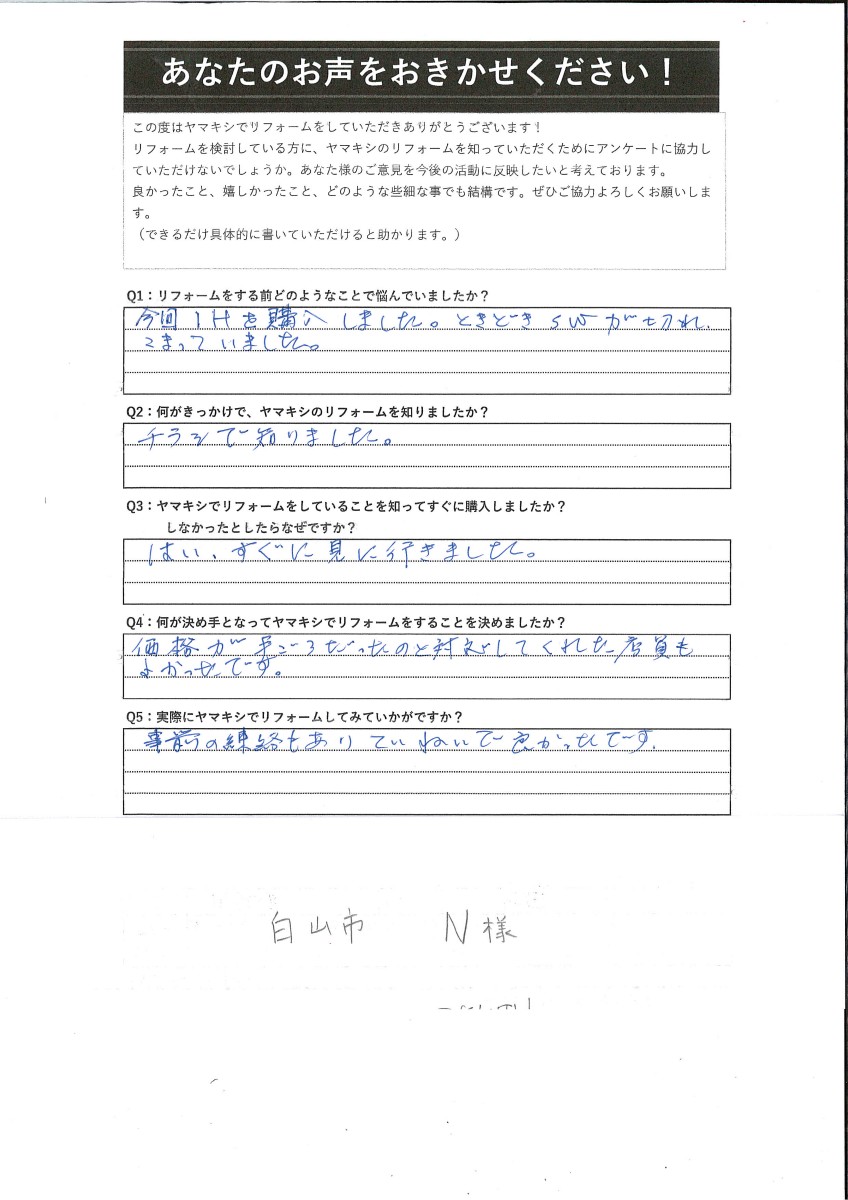 あなたのお声をおきかせください！
この度はヤマキシでリフォームをしていただきありがとうございます！
リフォームを検討している方に、ヤマキシのリフォームを知っていただくためにアンケートに協力し
ていただけないでしょうか。あなた様のご意見を今後の活動に反映したいと考えております。
良かったこと、嬉しかったこと、どのような些細な事でも結構です。ぜひご協力よろしくお願いしま
す。
（できるだけ具体的に書いていただけると助かります。）
Q1：リフォームをする前どのようなことで悩んでいましたか？
今回IHを購入しました。ときどきSWが切れ、
こまっていました。
Q2：何がきっかけで、ヤマキシのリフォームを知りましたか？
チラシで知りました。
Q3：ヤマキシでリフォームをしていることを知ってすぐに購入しましたか？
しなかったとしたらなぜですか？
はい、すぐに見に行きました。
Q4：何が決め手となってヤマキシでリフォームをすることを決めましたか？
価格が手ごろだったのと対応してくれた店員も
よかったです。
Q5：実際にヤマキシでリフォームしてみていかがですか？
事前の練絡もありていねいで良かったです。
白山市 N様